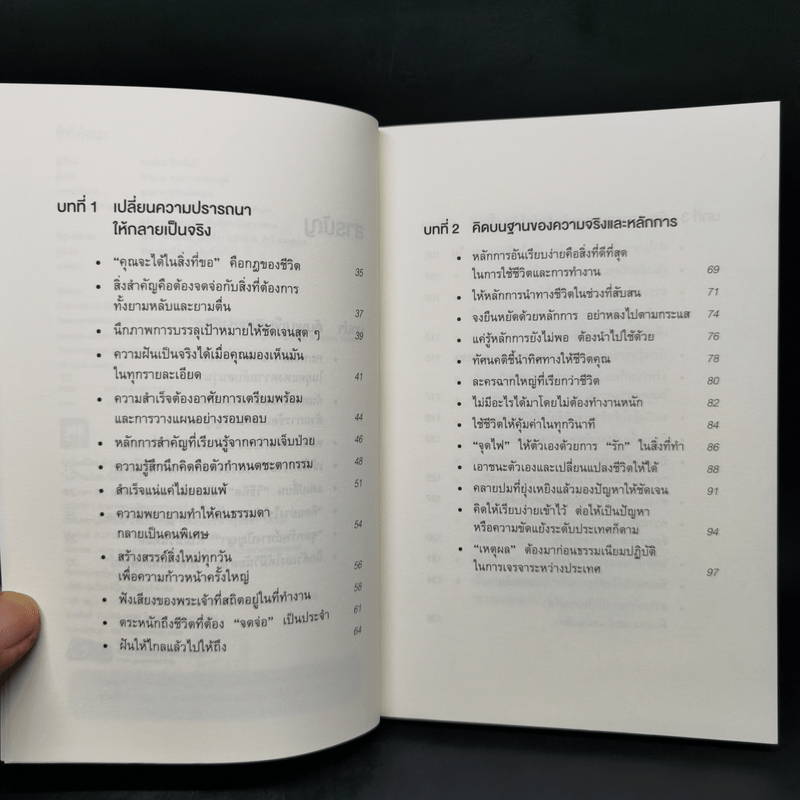 บทที่ 1 เปลี่ยนความปรารถนา
ให้กลายเป็นจริง
• “คุณจะได้ในสิ่งที่ขอ” คือกฎของชีวิต 35
• สิ่งสำคัญคือต้องจดจ่อกับสิ่งที่ต้องการ
ทั้งยามหลับและยามตื่น 37
• นึกภาพการบรรลุเป้าหมายให้ชัดเจนสุด ๆ 39
• ความฝันเป็นจริงได้เมื่อคุณมองเห็นมัน
ในทุกรายละเอียด 41
• ความสำเร็จต้องอาศัยการเตรียมพร้อม
และการวางแผนอย่างรอบคอบ 44
• หลักการสำคัญที่เรียนรู้จากความเจ็บป่วย 46
• ความรู้สึกนึกคิดคือตัวกำหนดชะตากรรม 48
• สำเร็จแน่แค่ไม่ยอมแพ้ 51
• ความพยายามทำให้คนธรรมดา
กลายเป็นคนพิเศษ 54
• สร้างสรรค์สิ่งใหม่ทุกวัน
เพื่อความก้าวหน้าครั้งใหญ่ 56
• ฟังเสียงของพระเจ้าที่สถิตอยู่ในที่ทำงาน 58
• ตระหนักถึงชีวิตที่ต้อง “จดจ่อ” เป็นประจำ 61
• ฝันให้ไกลแล้วไปให้ถึง 64
บทที่ 2 คิดบนฐานของความจริงและหลักการ
• หลักการอันเรียบง่ายคือสิ่งที่ดีที่สุด
ในการใช้ชีวิตและการทำงาน 69
• ให้หลักการนำทางชีวิตในช่วงที่สับสน 71
• จงยืนหยัดด้วยหลักการ อย่าหลงไปตามกระแส 74
• แค่รู้หลักการยังไม่พอ ต้องนำไปใช้ด้วย 76
• ทัศนคติชี้นำทิศทางให้ชีวิตคุณ 78
• ละครฉากใหญ่ที่เรียกว่าชีวิต 80
• ไม่มีอะไรได้มาโดยไม่ต้องทำงานหนัก 82
• ใช้ชีวิตให้คุ้มค่าในทุกวินาที 84
• “จุดไฟ” ให้ตัวเองด้วยการ “รัก” ในสิ่งที่ทำ 86
• เอาชนะตัวเองและเปลี่ยนแปลงชีวิตให้ได้ 88
• คลายปมที่ยุ่งเหยิงแล้วมองปัญหาให้ชัดเจน 91
• คิดให้เรียบง่ายเข้าไว้ ต่อให้เป็นปัญหา
หรือความขัดแย้งระดับประเทศก็ตาม 94
• “เหตุผล” ต้องมาก่อนธรรมเนียมปฏิบัติ
ในการเจรจาระหว่างประเทศ 97